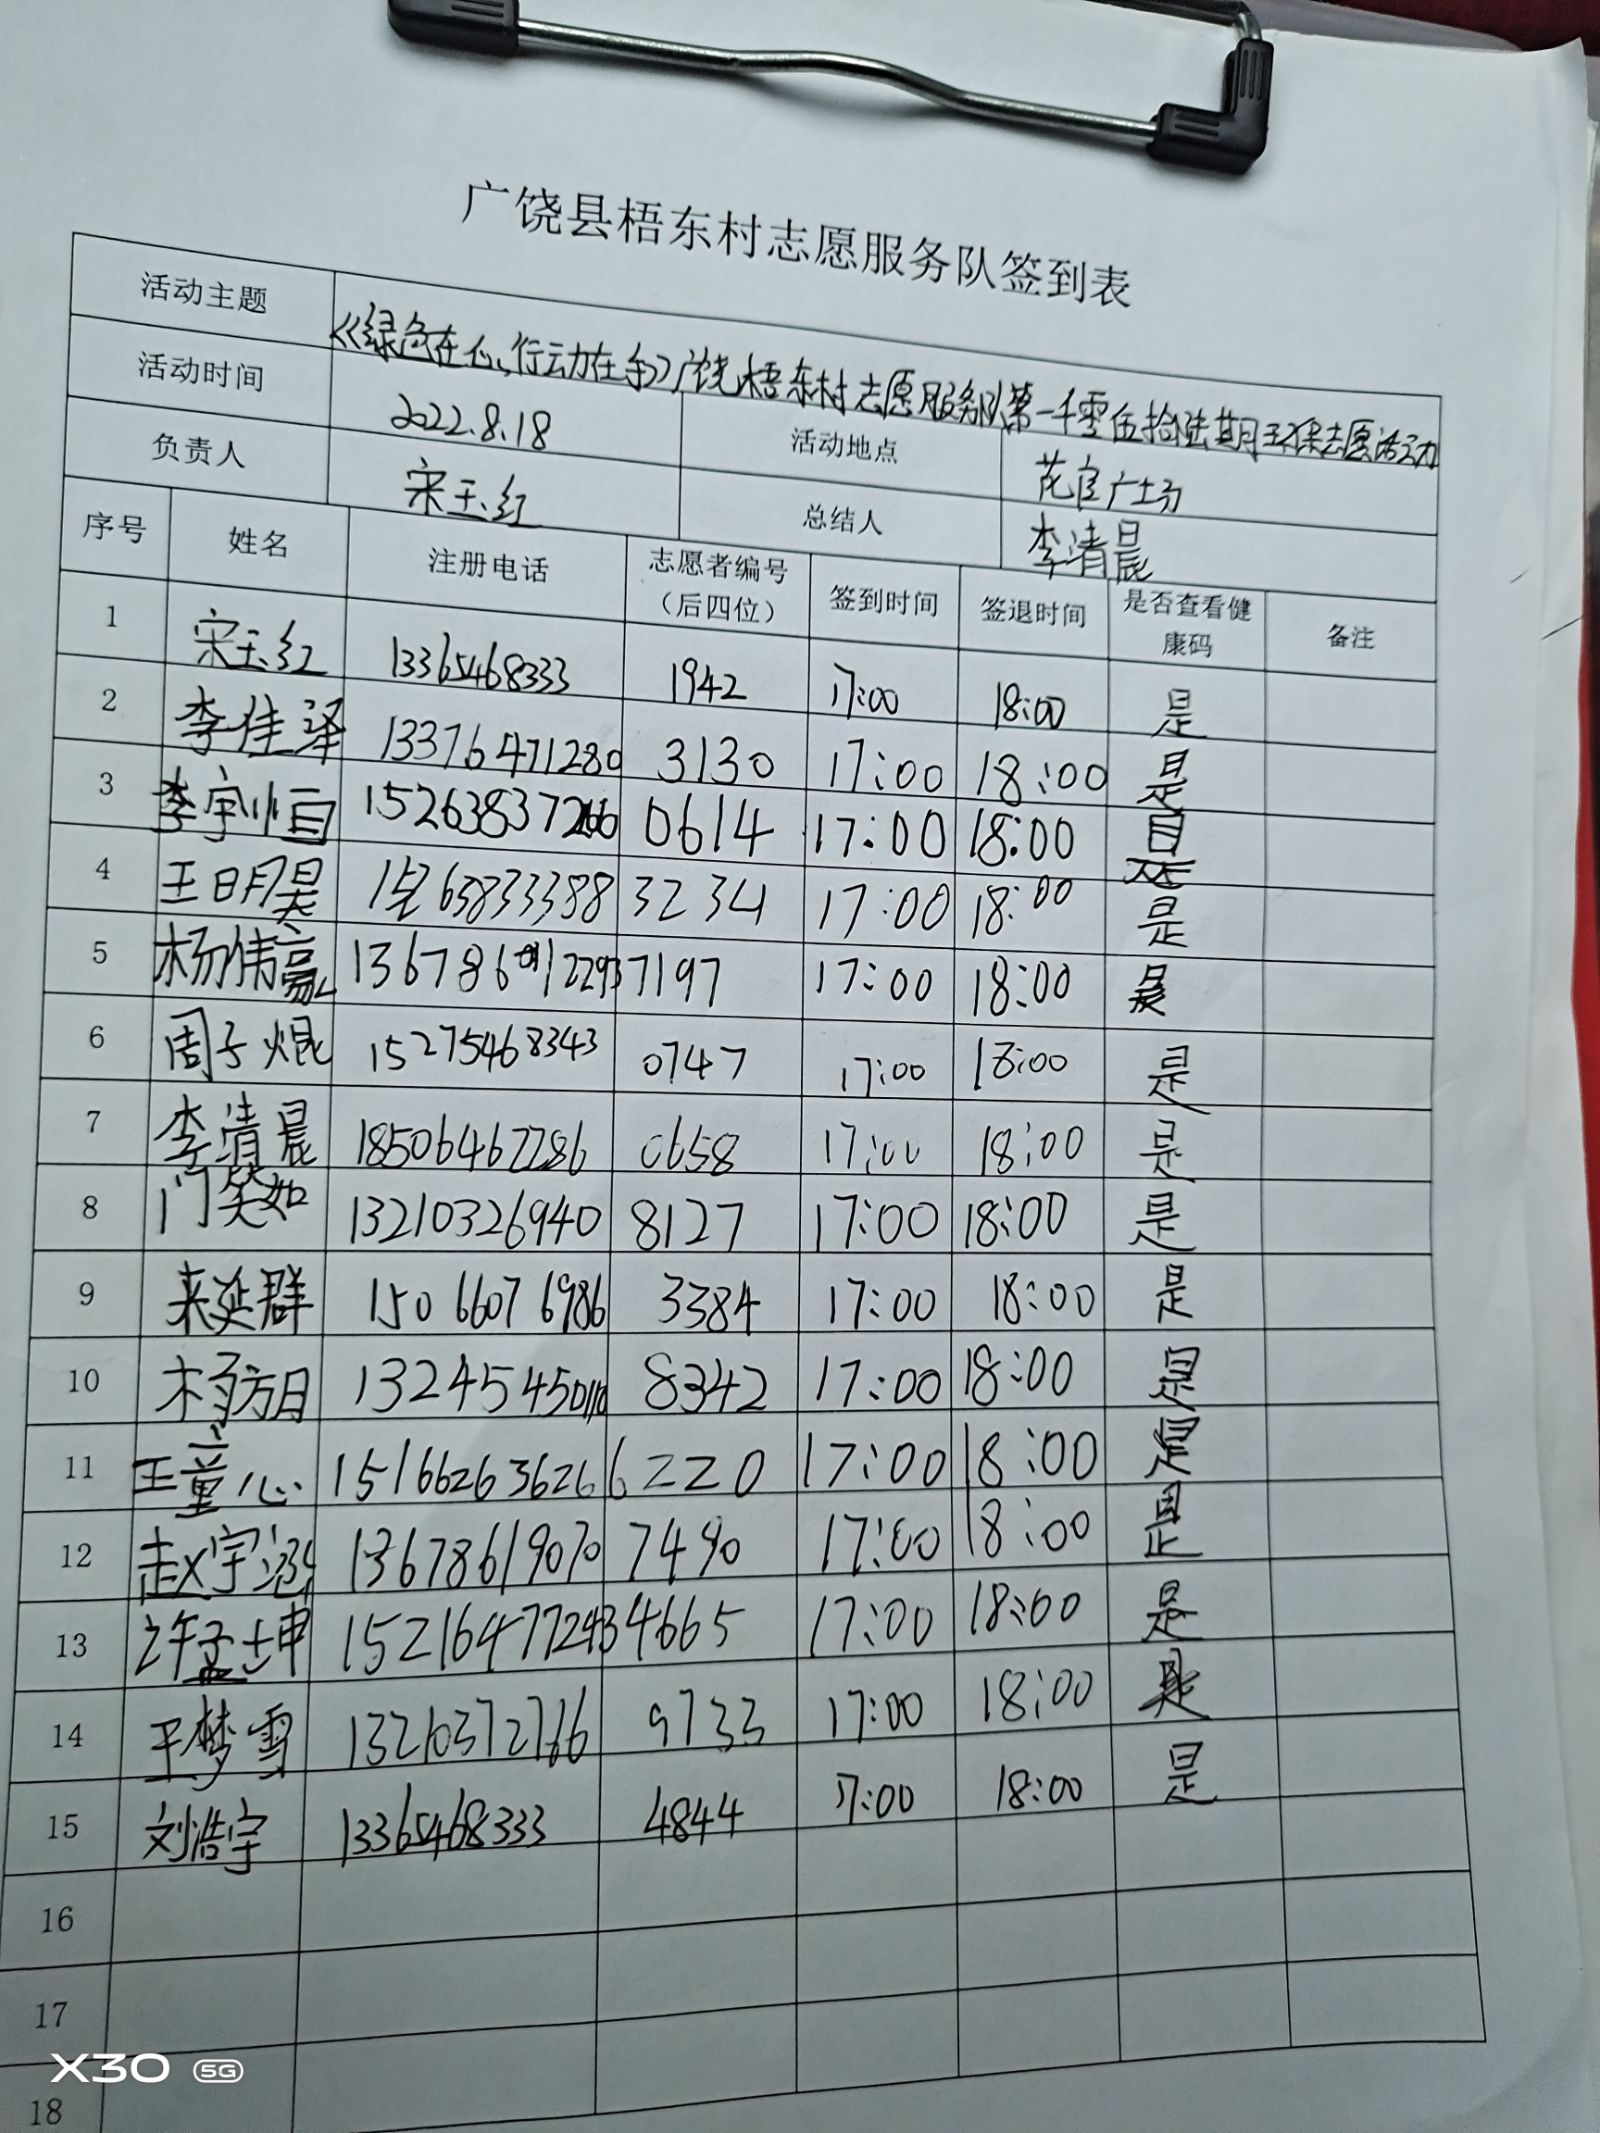 广饶县梧东村志愿服务队签到表
活动主题 《绿色在心、行动在手》广饶梧东村志愿服务队第一千零伍拾陆期环保志愿活动
活动时间 2022.8.18 活动地点 花官广场
负责人 宋玉红 总结人 李清晨
序号 姓名 注册电话 志愿者编号（后四位） 签到时间 签退时间 是否查看健康码 备注
1 宋玉红 13365468333 1942 17:00 18:00 是
2 李佳泽 13376471280 3130 17:00 18:00 是
3 李宇恒 0614 17:00 18:00 是
4 王明昊 3234 17:00 18:00 是
5 杨伟赢 7197 17:00 18:00 是
6 周子焜 15275468343 0747 17:00 18:00 是
7 李清晨 18506467286 0658 17:00 18:00 是
8 门笑如 13210326940 8127 17:00 18:00 是
9 来延群 15066076986 3384 17:00 18:00 是
10 8342 17:00 18:00 是
11 王童心 15166263626 6220 17:00 18:00 是
12 赵宇涵 13678619070 7490 17:00 18:00 是
13 许孟坤 15216477243 4665 17:00 18:00 是
14 王梦雪 9733 17:00 18:00 是
15 刘浩宇 13365468333 4844 17:00 18:00 是
16
17
18
X30 5G